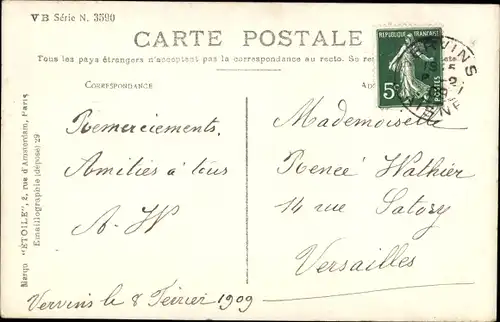 VB Série N. 3590
CARTE POSTALE
Tous les pays étrangers n'acceptent pas la correspondance au recto. Se
CORRESPONDANCE
REPUBLIQUE FRANÇAISE
5c
POSTES
Remerciements.
Amitiés à tous
A-W
Mademoiselle
Renée Wathier
14 rue Satory
Versailles
Vervins le 8 Février 1909
Marque "ÉTOILE", 2, rue d'Amsterdam, Paris
Emaillographie (déposé) 29